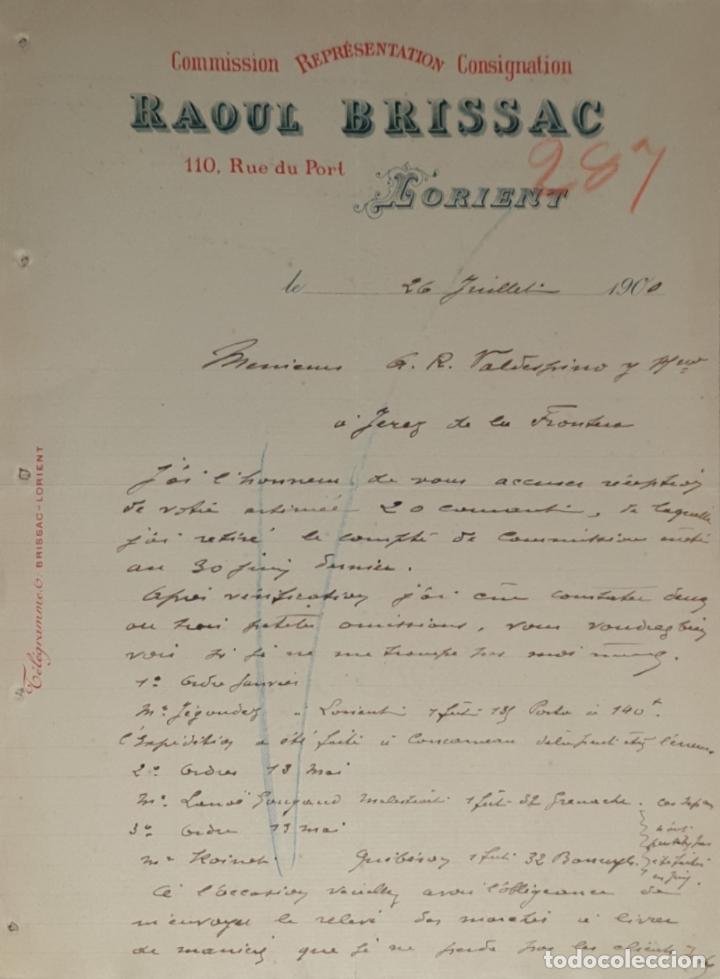 Commission REPRÉSENTATION Consignation
RAOUL BRISSAC
110, Rue du Port
LORIENT
287
le 26 Juillet 1900
Messieurs A. R. Valdespino y Hno
à Jerez de la Frontera
J'ai l'honneur de vous accuser réception
de votre estimée 20 courant, de laquelle
j'ai retiré le compte de Commissions
au 30 juin dernier.
Après vérification j'ai cru constater deux
ou trois petites omissions, vous voudrez bien
voir si je ne me trompe pas moi même.
1º Ordre Janvier
Mr Jégondez à Lorient 1 fût Porto à 140
l'expédition a été faite à Concarneau
2º Ordres 13 Mai
Mr Lanoë Gougaud Malestroit 1 fût Grenache.
3º Ordre 13 mai
Mr Quiberon 1 fût 32 Banyuls
en juin
A l'occasion veuillez avoir l'obligeance de
m'envoyer le relevé des marchés à livrer
de manière que je ne perde pas les clients
Télégrammes: BRISSAC-LORIENT
todocoleccion